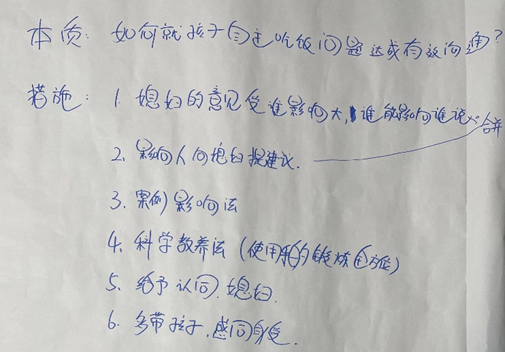 本质：如何就孩子自主吃饭问题达成有效沟通？
措施：1. 媳妇的意见受谁影响大，谁能影响谁说 合并
2. 影响人向媳妇提建议.
3. 案例影响法
4. 科学教养法（使用的锻炼）
5. 给予认同.媳妇.
6. 多带孩子.感同身受.